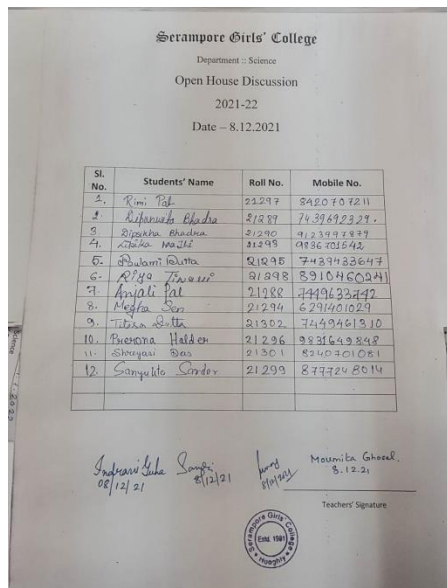 Serampore Girls' College
Department :: Science
Open House Discussion
2021-22
Date – 8.12.2021
Sl. No. Students' Name Roll No. Mobile No.
1. Rimi Pal 21297 8420707211
2. Dipanwita Bhadra 21289 7439692329.
3. Dipshha Bhadra 21290 9123997879
4. Maihi 21298 9836701542
5. Poulami Dutta 21295 7439433647
6- Riya Tiwari 21298 8910460241
7. Anjali Pal 21288 7449633742
8. Megha Sen 21294 6291401029
9. Titisa Dutta 21302 7449461310
10. Prerona Halder 21296 9831649848
11. Shreyasi Das 21301 8240701081
12. Sanyukta Sardar 21299 8777248014
Indrani Guha
08/12/21
8/12/21
8/12/2021
Moumita Ghosal.
8.12.21
Teachers' Signature
Serampore Girls' College
Estd. 1981
Hooghly